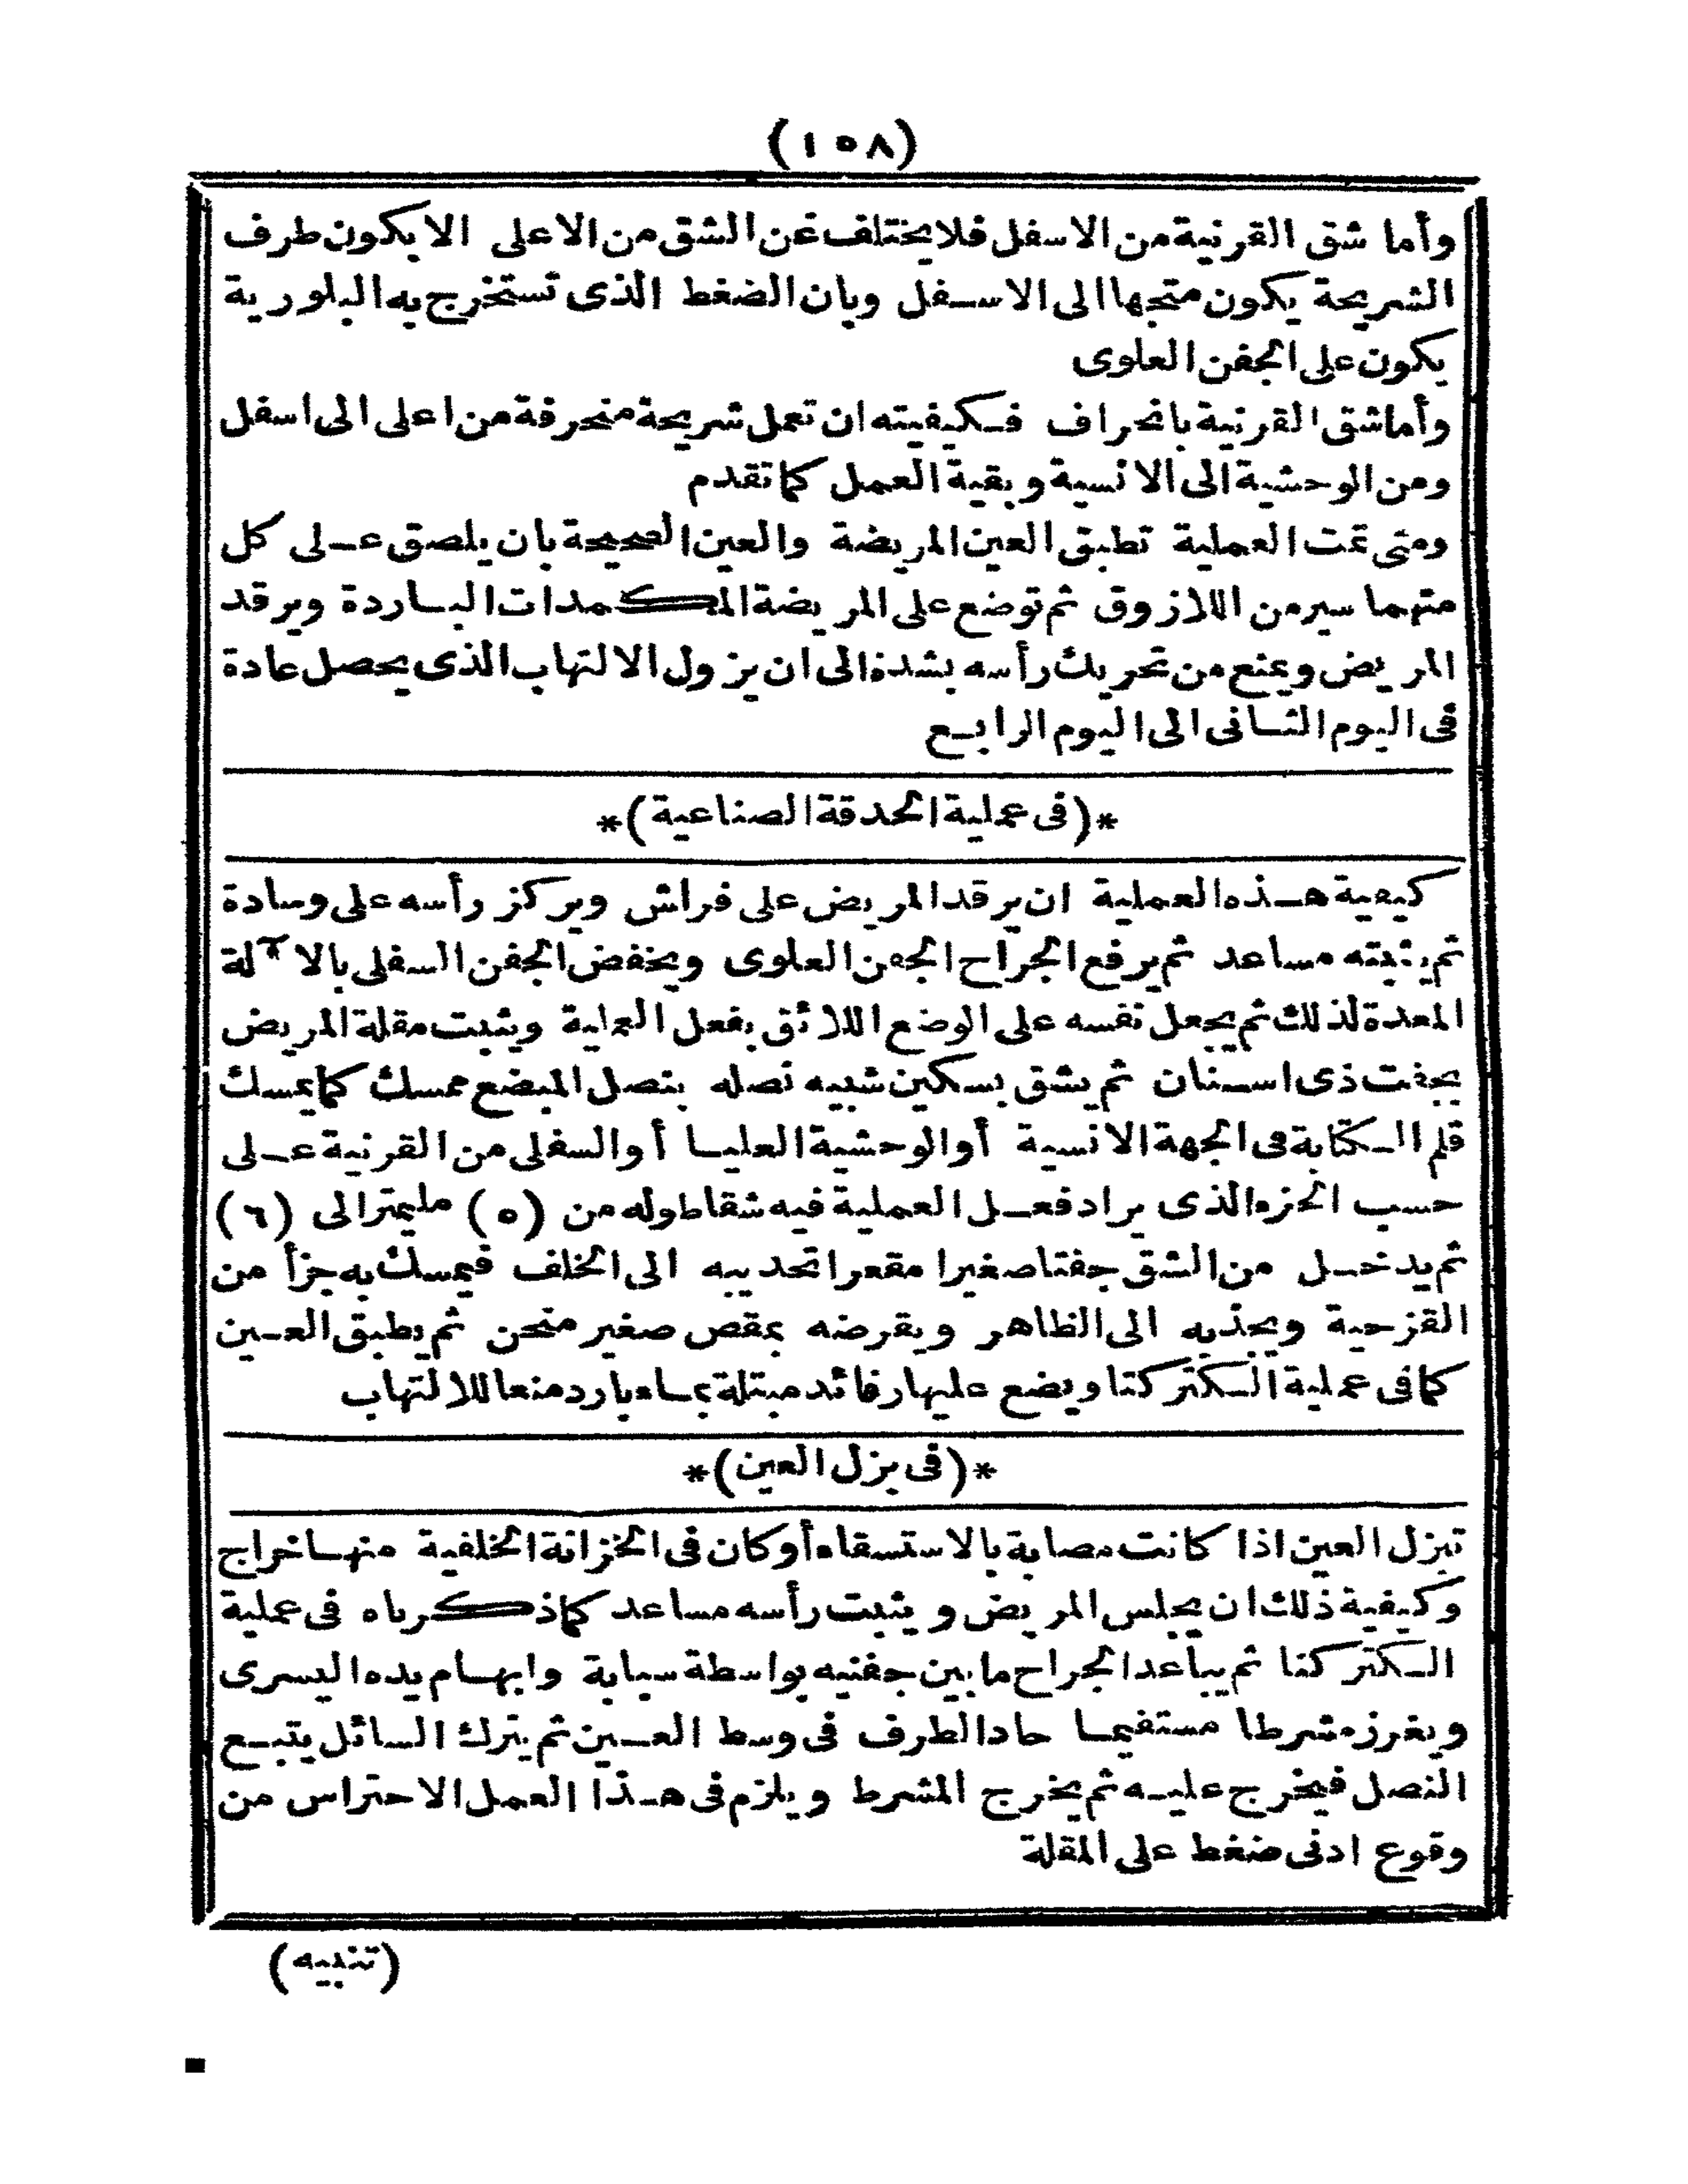 (١٥٨)
وأما شق القرنية من الاسفل فلا يختلف عن الشق من الاعلى الا بكون طرف
الشريحة يكون متجها الى الاسفل وبان الضغط الذى تستخرج به البلورية
يكون على الجفن العلوى
وأما شق القرنية بانحراف فكيفيته ان تعمل شريحة منحرفة من اعلى الى اسفل
ومن الوحشية الى الانسية وبقية العمل كما تقدم
ومتى تمت العملية تطبق العين المريضة والعين الصحيحة بان يلصق على كل
منهما سير من اللازوق ثم توضع على المريضة المكمدات الباردة ويرقد
المريض ويمنع من تحريك رأسه بشدة الى ان يزول الالتهاب الذى يحصل عادة
فى اليوم الثانى الى اليوم الرابع
*(فى عملية الحدقة الصناعية)*
كيفية هذه العملية ان يرقد المريض على فراش ويركز رأسه على وسادة
ثم يثبته مساعد ثم يرفع الجراح الجفن العلوى ويخفض الجفن السفلى بالآلة
المعدة لذلك ثم يجعل نفسه على الوضع اللائق بفعل العملية ويثبت مقلة المريض
بجفت ذى اسنان ثم يشق بسكين شبيه نصله بنصل المبضع ممسك كما يمسك
قلم الكتابة فى الجهة الانسية أو الوحشية العليا أو السفلى من القرنية على
حسب الجزء الذى يراد فعل العملية فيه شقا طوله من (٥) مليمتر الى (٦)
ثم يدخل من الشق جفتا صغيرا مقعرا تحديبه الى الخلف فيمسك به جزأ من
القزحية ويجذبه الى الظاهر ويقرضه بمقص صغير منحن ثم يطبق العين
كما فى عملية الكتركتا ويضع عليها رفائد مبتلة بماء بارد منعا للالتهاب
*(فى بزل العين)*
تبزل العين اذا كانت مصابة بالاستسقاء أو كان فى الخزانة الخلفية منها خراج
وكيفية ذلك ان يجلس المريض ويثبت رأسه مساعد كما ذكرناه فى عملية
الكتركتا ثم يباعد الجراح ما بين جفنيه بواسطة سبابة وابهام يده اليسرى
ويغرز مشرطا مستقيما حاد الطرف فى وسط العين ثم يترك السائل يتبع
النصل فيخرج عليه ثم يخرج المشرط ويلزم فى هذا العمل الاحتراس من
وقوع ادنى ضغط على المقلة
(تنبيه)